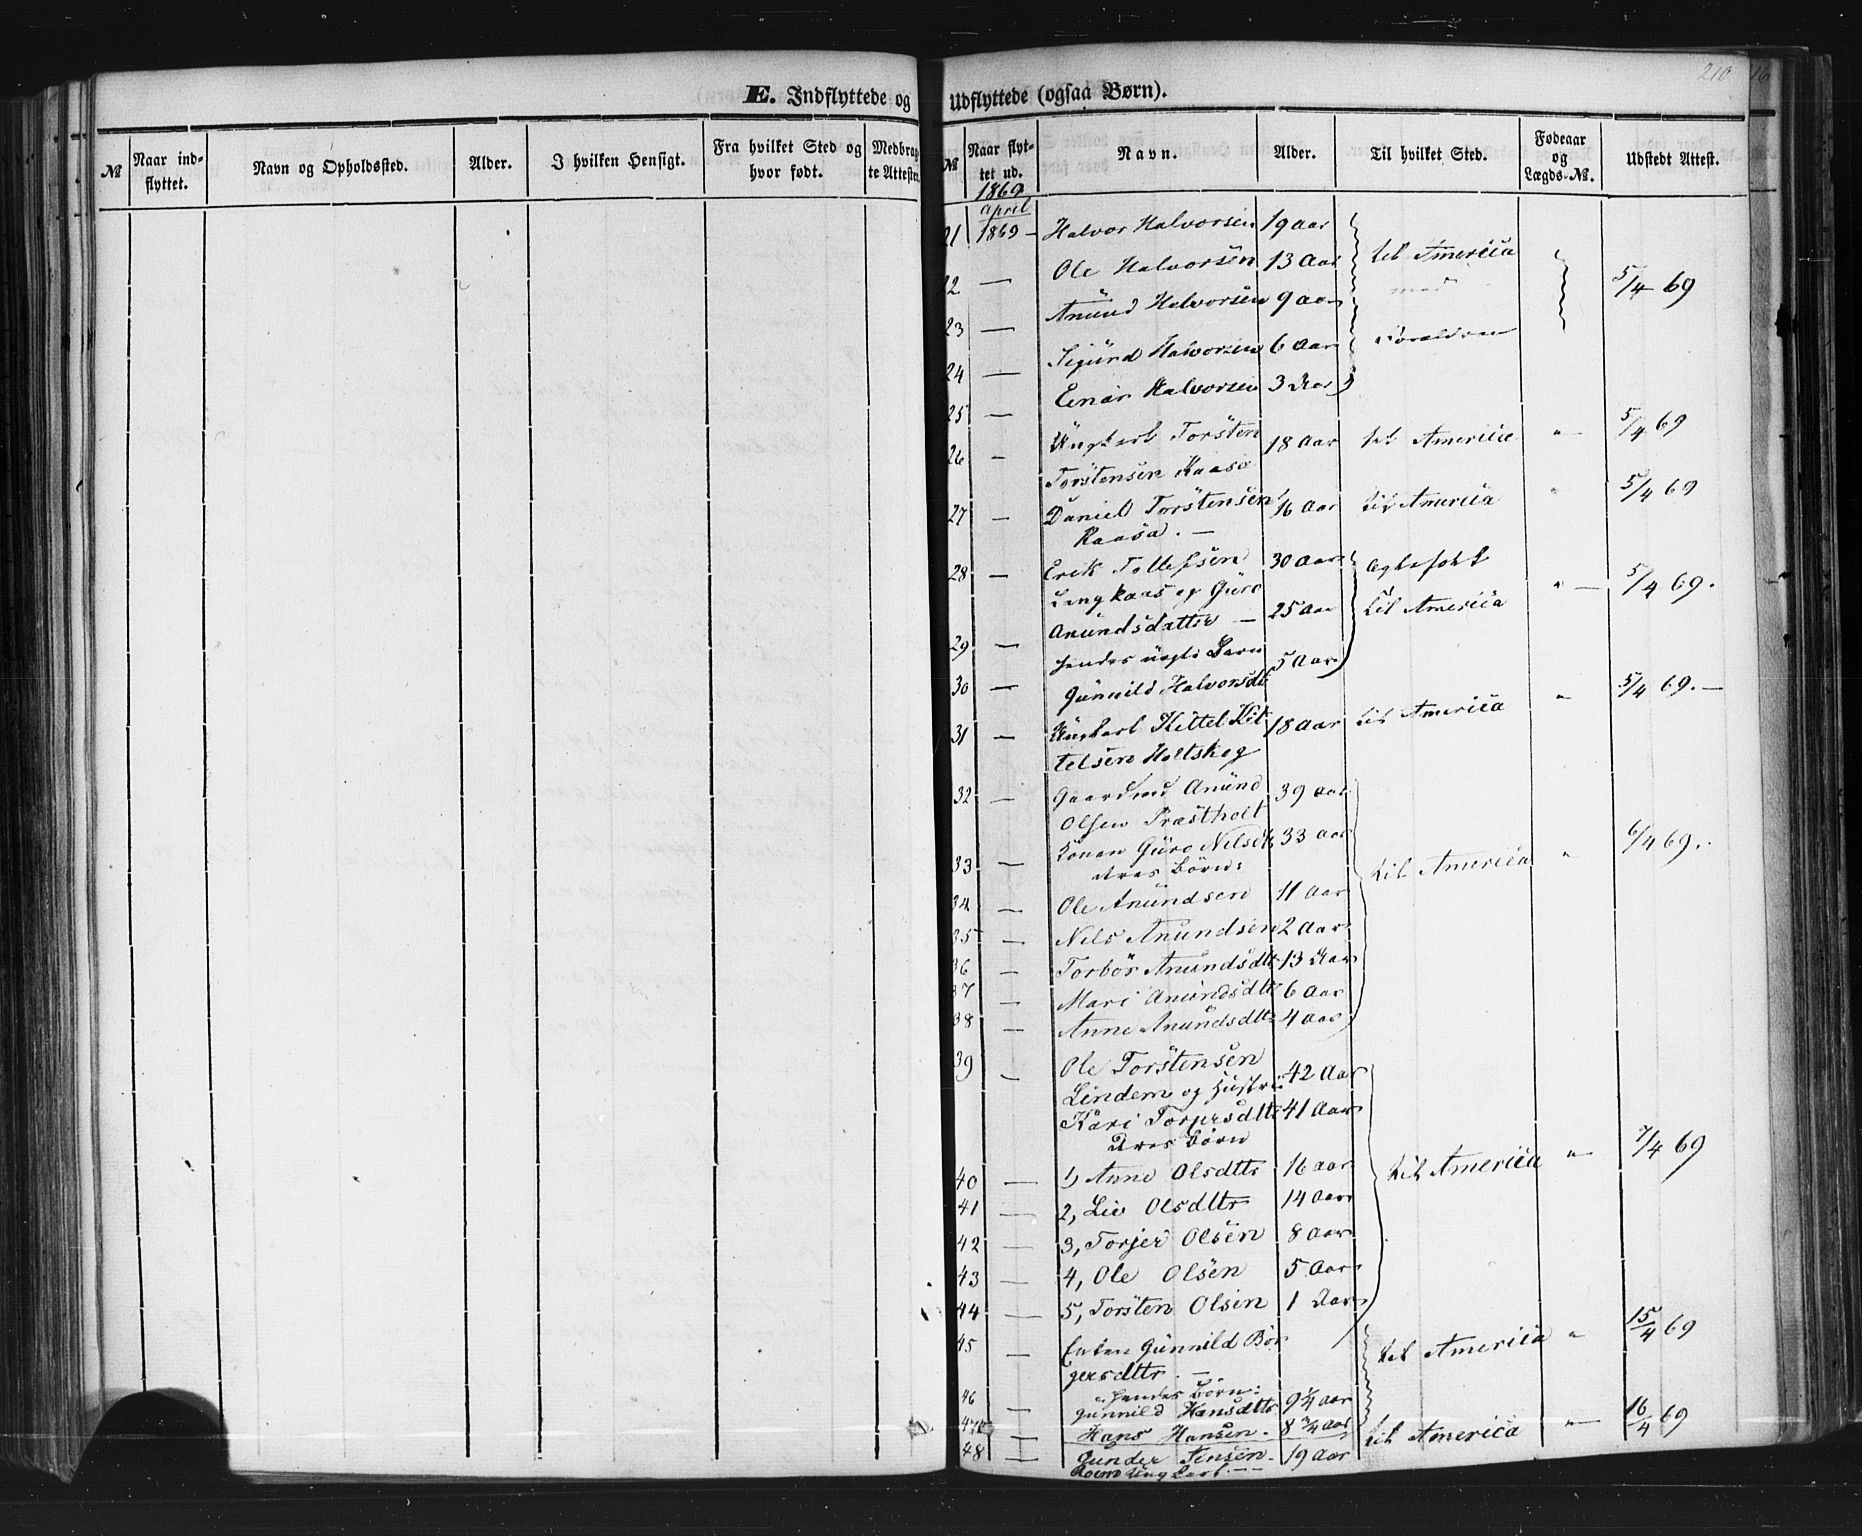 210
E. Indflyttede og Udflyttede (ogsaa Børn).
№ Naar indflyttet. Navn og Opholdssted. Alder. I hvilken Hensigt. Fra hvilket Sted og hvor født. Medbragte Attester.
№ Naar flyttet ud. Navn. Alder. Til hvilket Sted. Fødeaar og Lægds-№. Udstedt Attest.
1869
April
21 1869 – Halvor Halvorsen 19 Aar
til America
22 — Ole Halvorsen 13 Aar
med 5/4 69
23 — Anund Halvorsen 9 aar
Foræeldrene
24 — Sigurd Halvorsen 6 Aar
25 — Einar Halvorsen 3 Aar
26 – Ungkarl Torsten 18 Aar til America " 5/4 69
Torstensen Raasa
27 – Daniel Torstensen 16 Aar til America " 5/4 69
Raasa. —
28 — Erik Tollefsen 30 Aar Ægtefolk
Langkaas og Guro
29 — Anundsdatter — 25 Aar til America " — 5/4 69.
hendes uægte Barn
30 — Gunnild Halvorsdt 5 Aar
31 – Ungkarl Kittel Kit 18 Aar til America " 5/4 69. —
telsen Holtskog
32 — Gaardmd Anund 39 Aar
Olsen Præstholt
33 — Konen Guro Nilsdtr 33 aar til America " 6/4 69.
deres Børn:
34 — Ole Anundsen 11 Aar
35 — Nils Anundsen 2 Aar
36 — Torbør Anundsdtr 13 Aar
37 — Mari Anundsdtr 6 Aar
38 — Anne Anundsdtr 4 Aar
39 – Ole Torstensen 42 Aar
Lindem og Hustru
Kari Torjersdtr 41 Aar
deres Børn
40 — 1, Anne Olsdtr 16 aar til America " 7/4 69
41 — 2, Liv Olsdtr 14 Aar
42 — 3, Torjer Olsen 8 Aar
43 — 4, Ole Olsen 5 Aar
44 — 5, Torsten Olsen 1 Aar
45 — Enken Gunnild Bør til America " 15/4 69
gersdtr. —
hendes Børn:
46 — Gunnild Hansdtr 9 1/4 aar
47 — Hans Hansen. 8 3/4 aar
48 — Gunder Jensen. 19 Aar til America " — 16/4 69
Ungkarl. — —